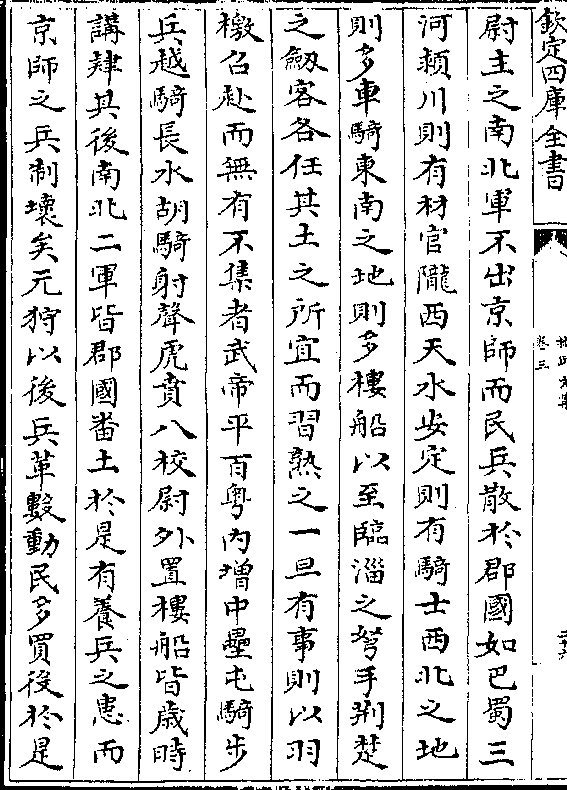 欽定四庫全書
卷三
尉主之南北軍不出京師而民兵散於郡國如巴蜀三
河潁川則有材官隴西天水安定則有騎士西北之地
則多車騎東南之地則多樓船以至臨淄之弩手荆楚
之劔客各任其土之所宜而習熟之一旦有事則以羽
檄召赴而無有不集者武帝平百粤内增中壘屯騎步
兵越騎長水胡騎射聲虎賁八校尉外置樓船皆歲時
講肄其後南北二軍皆郡國畨土於是有養兵之患而
京師之兵制壊矣元狩以後兵革數動民多買復於是